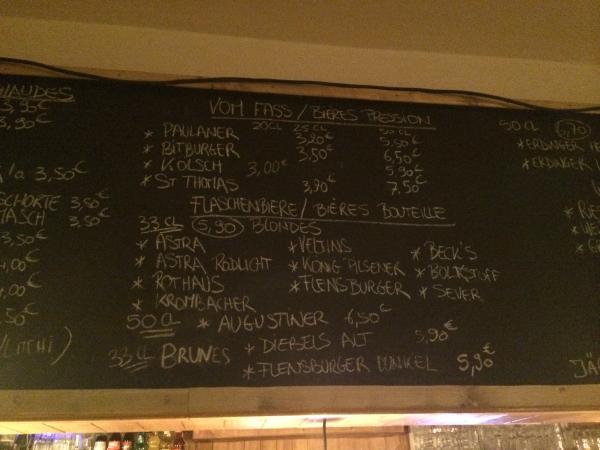 IAUDES
3,90€
3,90
1/a 3,50€
SCHORTE 3,50€
MASCH 3,50€
3,50€
4,00€
4,00€
,50€
VOM FASS / BIÈRES PRESSION
20CL 25 CL 50 CL
* PAULANER 3,20€ 5,50€
* BITBURGER 3,50€ 6,50€
* KOLSCH 3,00€ 5,90€
* ST THOMAS 3,90€ 7,50€
FLASCHENBIERE / BIÈRES BOUTEILLE
33 CL 5,90 BLONDES
* ASTRA * VELTINS * BECK'S
* ASTRA RODLICHT * KÖNIG PILSENER * BOLTSTUFF
* ROTHAUS * FLENSBURGER * SEVER
* KROMBACHER
50 CL * AUGUSTINER 6,50€
33 CL BRUNES * DIEBELS ALT 5,90€
* FLENSBURGER DUNKEL 5,90€
50 CL 6,70
* ERDINGER HE
* ERDINGER
JÄ